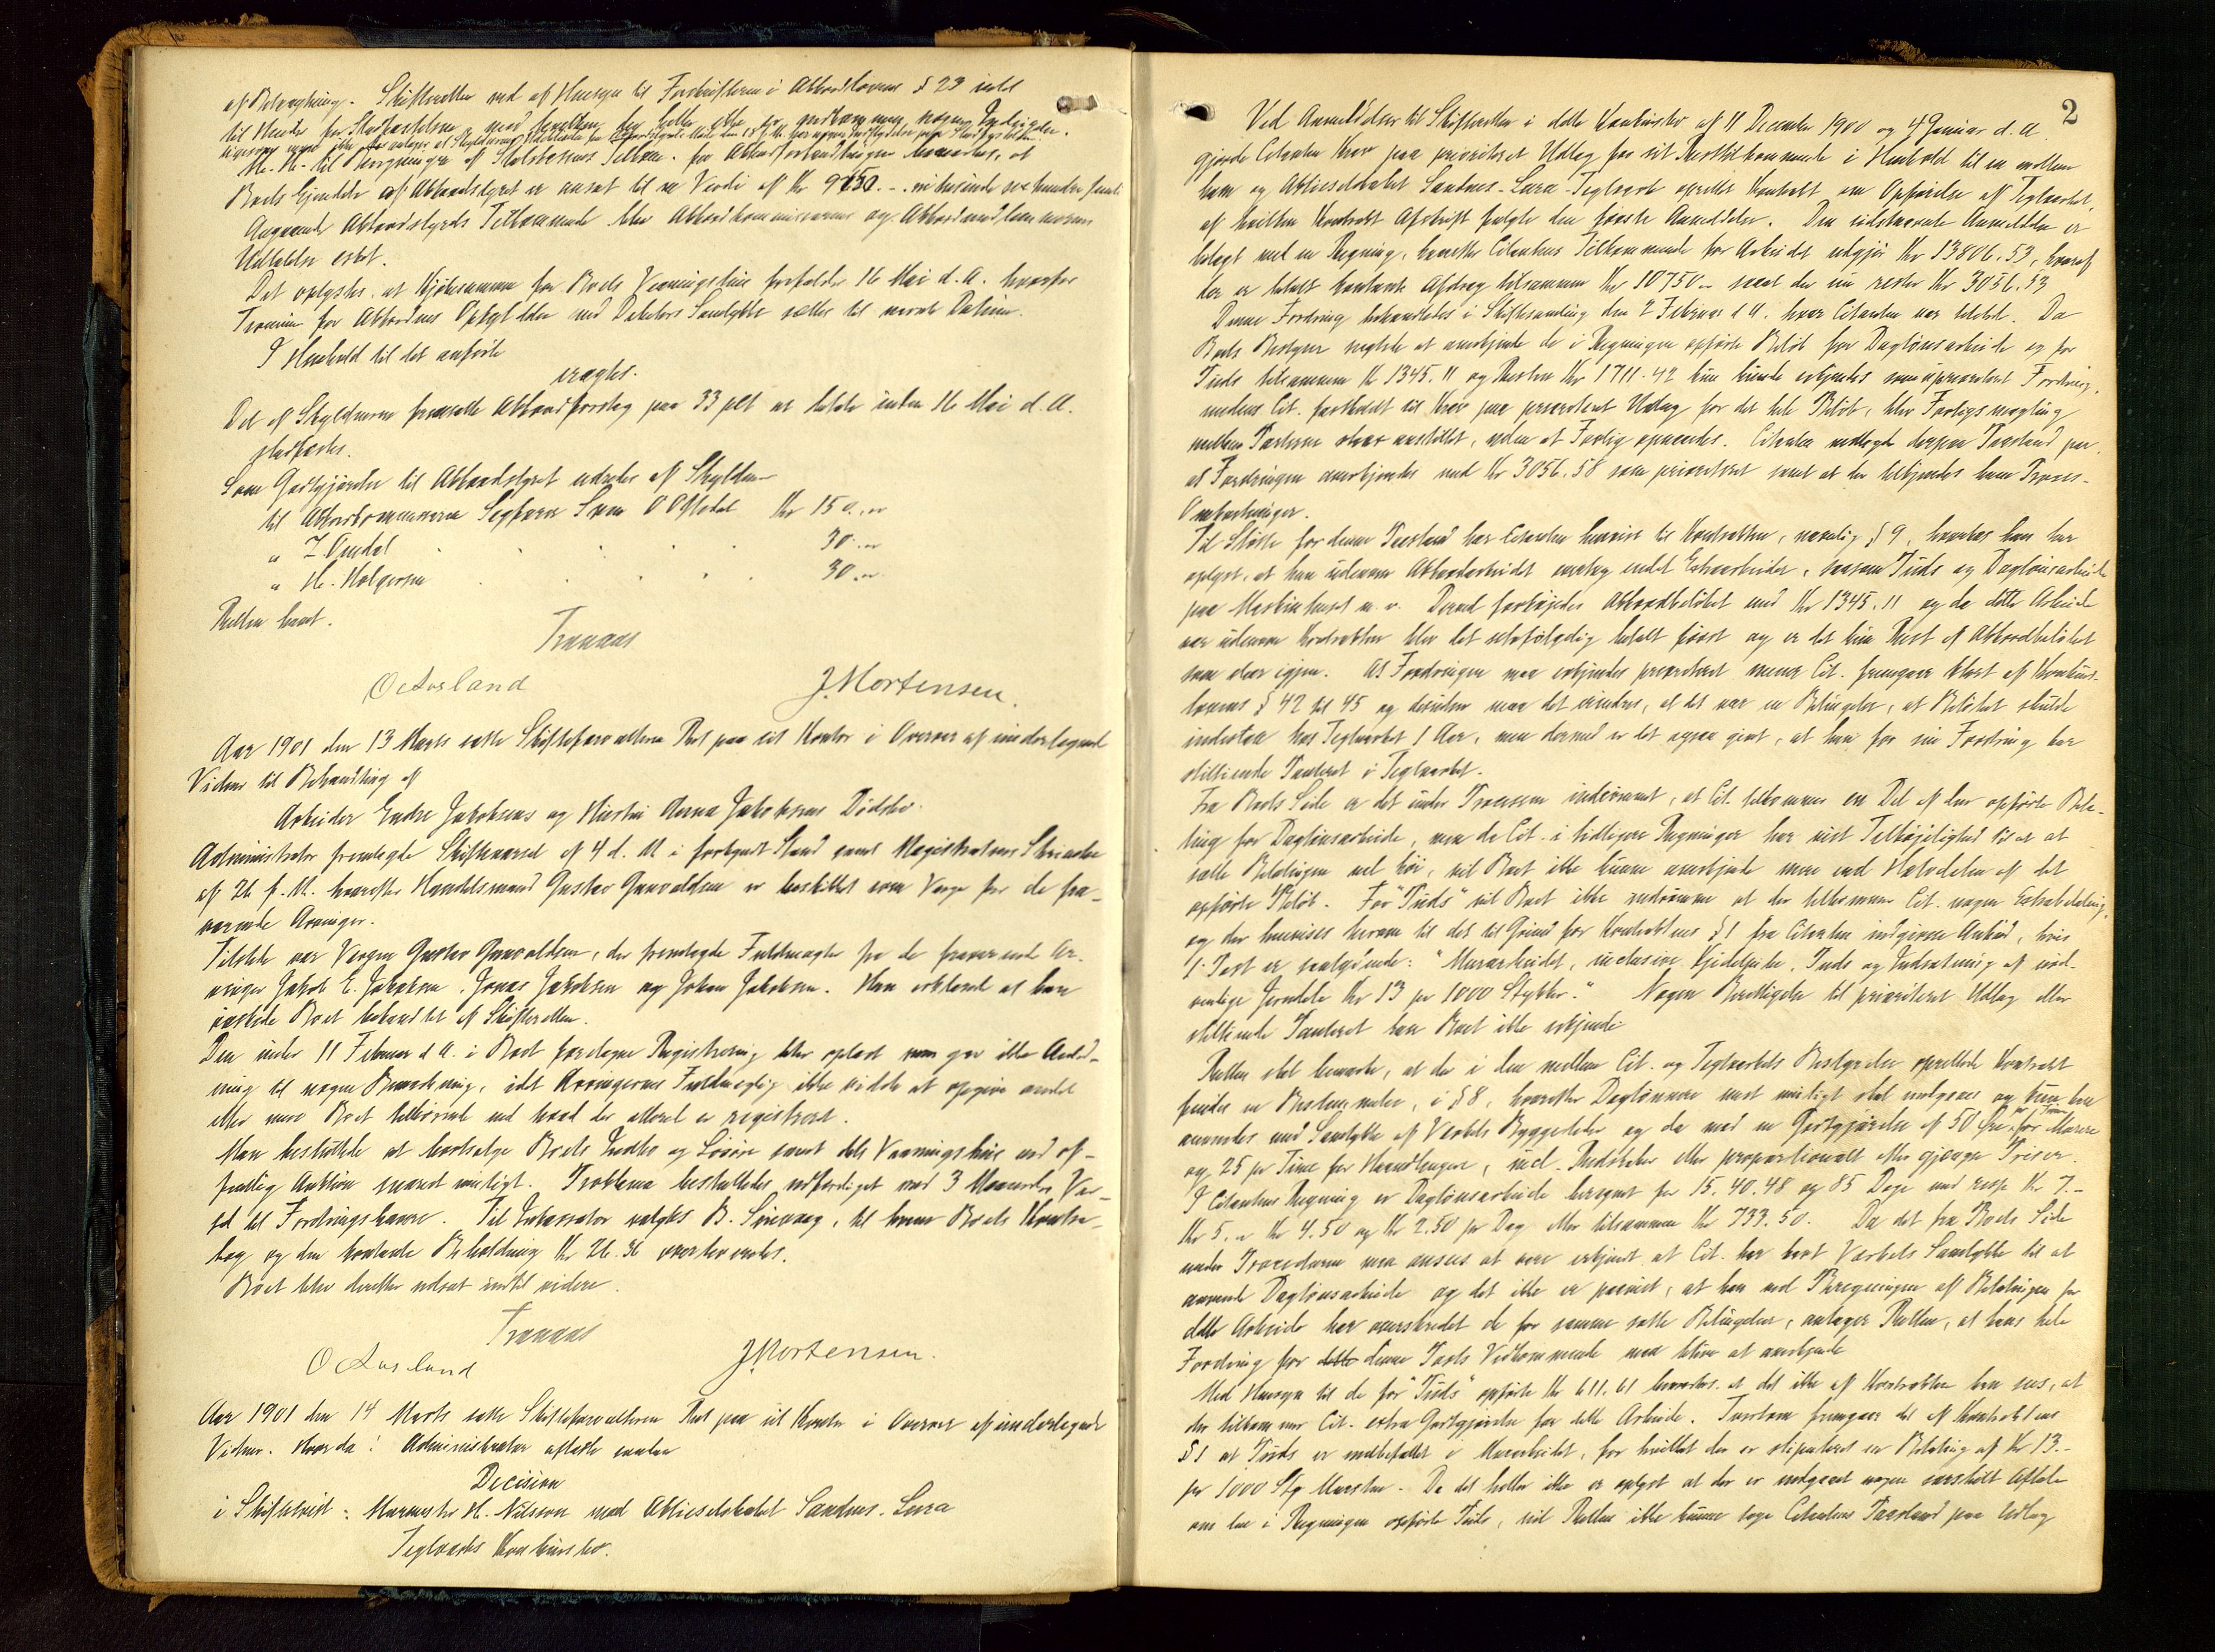 af Betragtning. Skifteretten ved af Hensyn til Forskrifterne i Akkordlovens § 23 intet
til Hinder for Stadfæstelsen, mod hvilken der heller ikke er indkommen nogen Indsigelse.
M. H. til Beregningen af Statskassens Tilkom. for Akkordforhandlingen bemærkes, at
Boets Eiendele af Akkordstyret er ansat til en Værdi af Kr 9650.-. ni tusinde sex hundre femti
Angaaende Akkordstyrets Tilkommende blev Akkordkommissærens og Akkordmedlemmernes
Udtalelse æsket.
Det oplystes, at Kjøbesummen for Boets Vaaningshus forfalder 16 Mai d. A. hvorfor
Termin for Akkordens Opfyldelse med Debitors Samtykke sættes til nævnte Datum.
I Henhold til det anførte
eragtes.
Det af Skyldneren fremsatte Akkordforslag paa 33 pCt at betale inden 16 Mai d. A.
stadfæstes.
Som Godtgjørelse til Akkordstyret udredes af Skyldneren
til Akkordkommissæren Sagfører Sven O Oftedal Kr 150.00
" T. Omdal . . . . . 30.00
" H. Holgersen . . . . . 30.00
Retten hævet.
Tranaas
O Aarsland J. Mortensen.
Aar 1901 den 13 Marts satte Skifteforvalteren Ret paa sit Kontor i Overvær af underlegnede
Vidner til Behandling af
Arbeider Endre Jakobsens og Hustru Anna Jakobsens Dødsbo.
Administrator fremlagde Skiftevarsel af 4 d. M. i forkyndt Stand samt Magistratens Skrivelse
af 26 f. M. hvorefter Handelsmand Gustav Gunvaldsen er beskikket som Værge for de fra-
værende Arvinger.
Tilstede var Værgen Gustav Gunvaldsen, der fremlagde Fuldmagter fra de fraværende Ar-
vinger Jakob E. Jakobsen, Jonas Jakobsen og Johan Jakobsen. Han erklærede at han
ønskede Boet behandlet af Skifteretten.
Den under 11 Februar d A. i Boet foretagne Registrering blev oplæst som gav ikke Anled-
ning til nogen Bemærkning, idet Arvingernes Fuldmægtig ikke vidste at opgive andet
eller mere Boet tilhørende end hvad der allerede er registreret.
Man besluttede at bortsælge Boets Indbo og Løsøre samt dets Vaaningshus ved of-
fentlig Auktion snarest muligt. Proklama besluttedes udfærdiget med 3 Maaneders Var-
sel til Fordringshavere. Til Inkassator valgtes B. Sinnæs, til hvem Boets Kontra-
bog og den kontante Beholdning Kr 26.36 overleveredes.
Boet blev derefter udsat indtil videre.
Tranaas
O Aarsland J Mortensen.
Aar 1901 den 14 Marts satte Skifteforvalteren Ret paa sit Kontor i Overvær af underlegnede
Vidner. Hvorda: Administrator afsagde saadan
Decision
i Skiftetvist: Murmester H. Nilsson mod Aktieselskabet Sandnes-Lura
Teglværks Konkursbo.
2
Ved Anmeldelser til Skifteretten i dette Konkursbo af 11 December 1900 og 4 Januar d. A.
gjorde Citanten Krav paa prioriteret Udlæg for sit Resttilkommende i Henhold til en mellem
ham og Aktieselskabet Sandnes-Lura Teglværk oprettet Kontrakt om Opførelse af Teglværket,
af hvilken Kontrakt Afskrift fulgte den første Anmeldelse. Den sidstnævnte Anmeldelse er
bilagt med en Regning, hvorefter Citantens Tilkommende for Arbeidet udgjør Kr 13806.53, hvoraf
der er betalt kontante Afdrag tilsammen Kr 10750.- saa at der nu rester Kr 3056.53
Denne Fordring behandledes i Skiftesamling den 2 Februar d A. hvor Citanten var tilstede. Da
Boets Bestyrer negtede at anerkjende de i Regningen opførte Beløb for Daglønsarbeide og for
Puds tilsammen Kr 1345.11 og Resten Kr 1711.42 kun kunde erkjendes som uprioriteret Fordring,
medens Cit. fastholdt sit Krav paa prioriteret Udlæg for det hele Beløb, blev Forligsmægling
mellem Parterne anstillet, uden at Forlig opnaaedes. Citanten nedlagde derpaa Paastand paa,
at Fordringen anerkjendes med Kr 3056.58 som prioriteret samt at der tilkjendes ham Proces-
Omkostninger.
Til Støtte for denne Paastand har Citanten henvist til Kontrakten, navnlig § 9, hvorhos han har
oplyst, at han udenom Akkordarbeidet overtog endel Extraarbeider, saasom Puds og Daglønsarbeide
paa Maskinhuset m. v. Derved forhøiedes Akkordbeløbet med Kr 1345.11 og da dette Arbeide
var udenom Kontrakten blev det selvfølgelig betalt først og er det kun Rest af Akkordbeløbet
som staar igjen. At Fordringen maa erkjendes prioriteret mener Cit. fremgaar klart af Konkurs-
lovens § 42 til 45 og desuden maa det erindres, at det var en Betingelse, at Beløbet skulde
indestaa hos Teglværket 1 Aar, men dermed er det ogsaa givet, at han for sin Fordring har
stiltiende Panteret i Teglværket.
Fra Boets Side er det under Processen indrømmet, at Cit. tilkommer en Del af den opførte Beta-
ling for Daglønsarbeide, men da Cit. i tidligere Regninger har vist Tilbøielighed til at
sætte Betalingen vel høi, vil Boet ikke kunne anerkjende mere end Halvdelen af det
opførte Beløb. For "Puds" vil Boet ikke indrømme at der tilkommer Cit. nogen Extrabetaling,
og der henvises herom til det til Grund for Kontraktens § 1 fra Citanten indgivne Anbud, hvis
1. Post er saalydende: "Murarbeidet, inclusive Kjedelpibe, Puds og Indsætning af nød-
vendige Jerndele Kr 13 pr 1000 Stykker." Nogen Berettigelse til prioriteret Udlæg eller
stiltiende Panteret kan Boet ikke erkjende.
Retten skal bemærke, at der i den mellem Cit. og Teglværkets Bestyrelse oprettede Kontrakt
findes en Bestemmelse, i § 8, hvorefter Daglønnere mest muligt skal undgaaes og kun kan
anvendes med Samtykke af Værkets Byggeleder og da med en Godtgjørelse af 50 Øre pr Time for Murere
og 25 pr Time for Haandlangere, incl. Redskaber eller proportionalt efter gjængse Priser.
I Citantens Regning er Daglønsarbeide beregnet for 15, 40, 48 og 85 Dage med resp Kr 7.-
Kr 5.- Kr 4.50 og Kr 2.50 pr Dag eller tilsammen Kr 733.50. Da det fra Boets Side
under Proceduren maa ansees at være erkjendt at Cit. har havt Værkets Samtykke til at
anvende Daglønsarbeide og det ikke er paavist, at han ved Beregningen af Betalingen for
dette Arbeide har overskredet de for samme satte Betingelser, antager Retten, at hans hele
Fordring for denne Posts Vedkommende maa blive at anerkjende.
Med Hensyn til de for "Puds" opførte Kr 611.61 bemærkes, at det ikke af Kontrakten kan sees, at
der tilkommer Cit. extra Godtgjørelse for dette Arbeide. Tvertom fremgaar det af Kontraktens
§ 1 at Puds er indbefattet i Murarbeidet, for hvilket der er stipuleret en Betaling af Kr 13.-
pr 1000 Stk Mursten. Da det heller ikke er oplyst at der er indgaaet nogen særskilt Aftale
om den i Regningen opførte Puds, vil Retten ikke kunne tage Citantens Paastand paa Udlæg